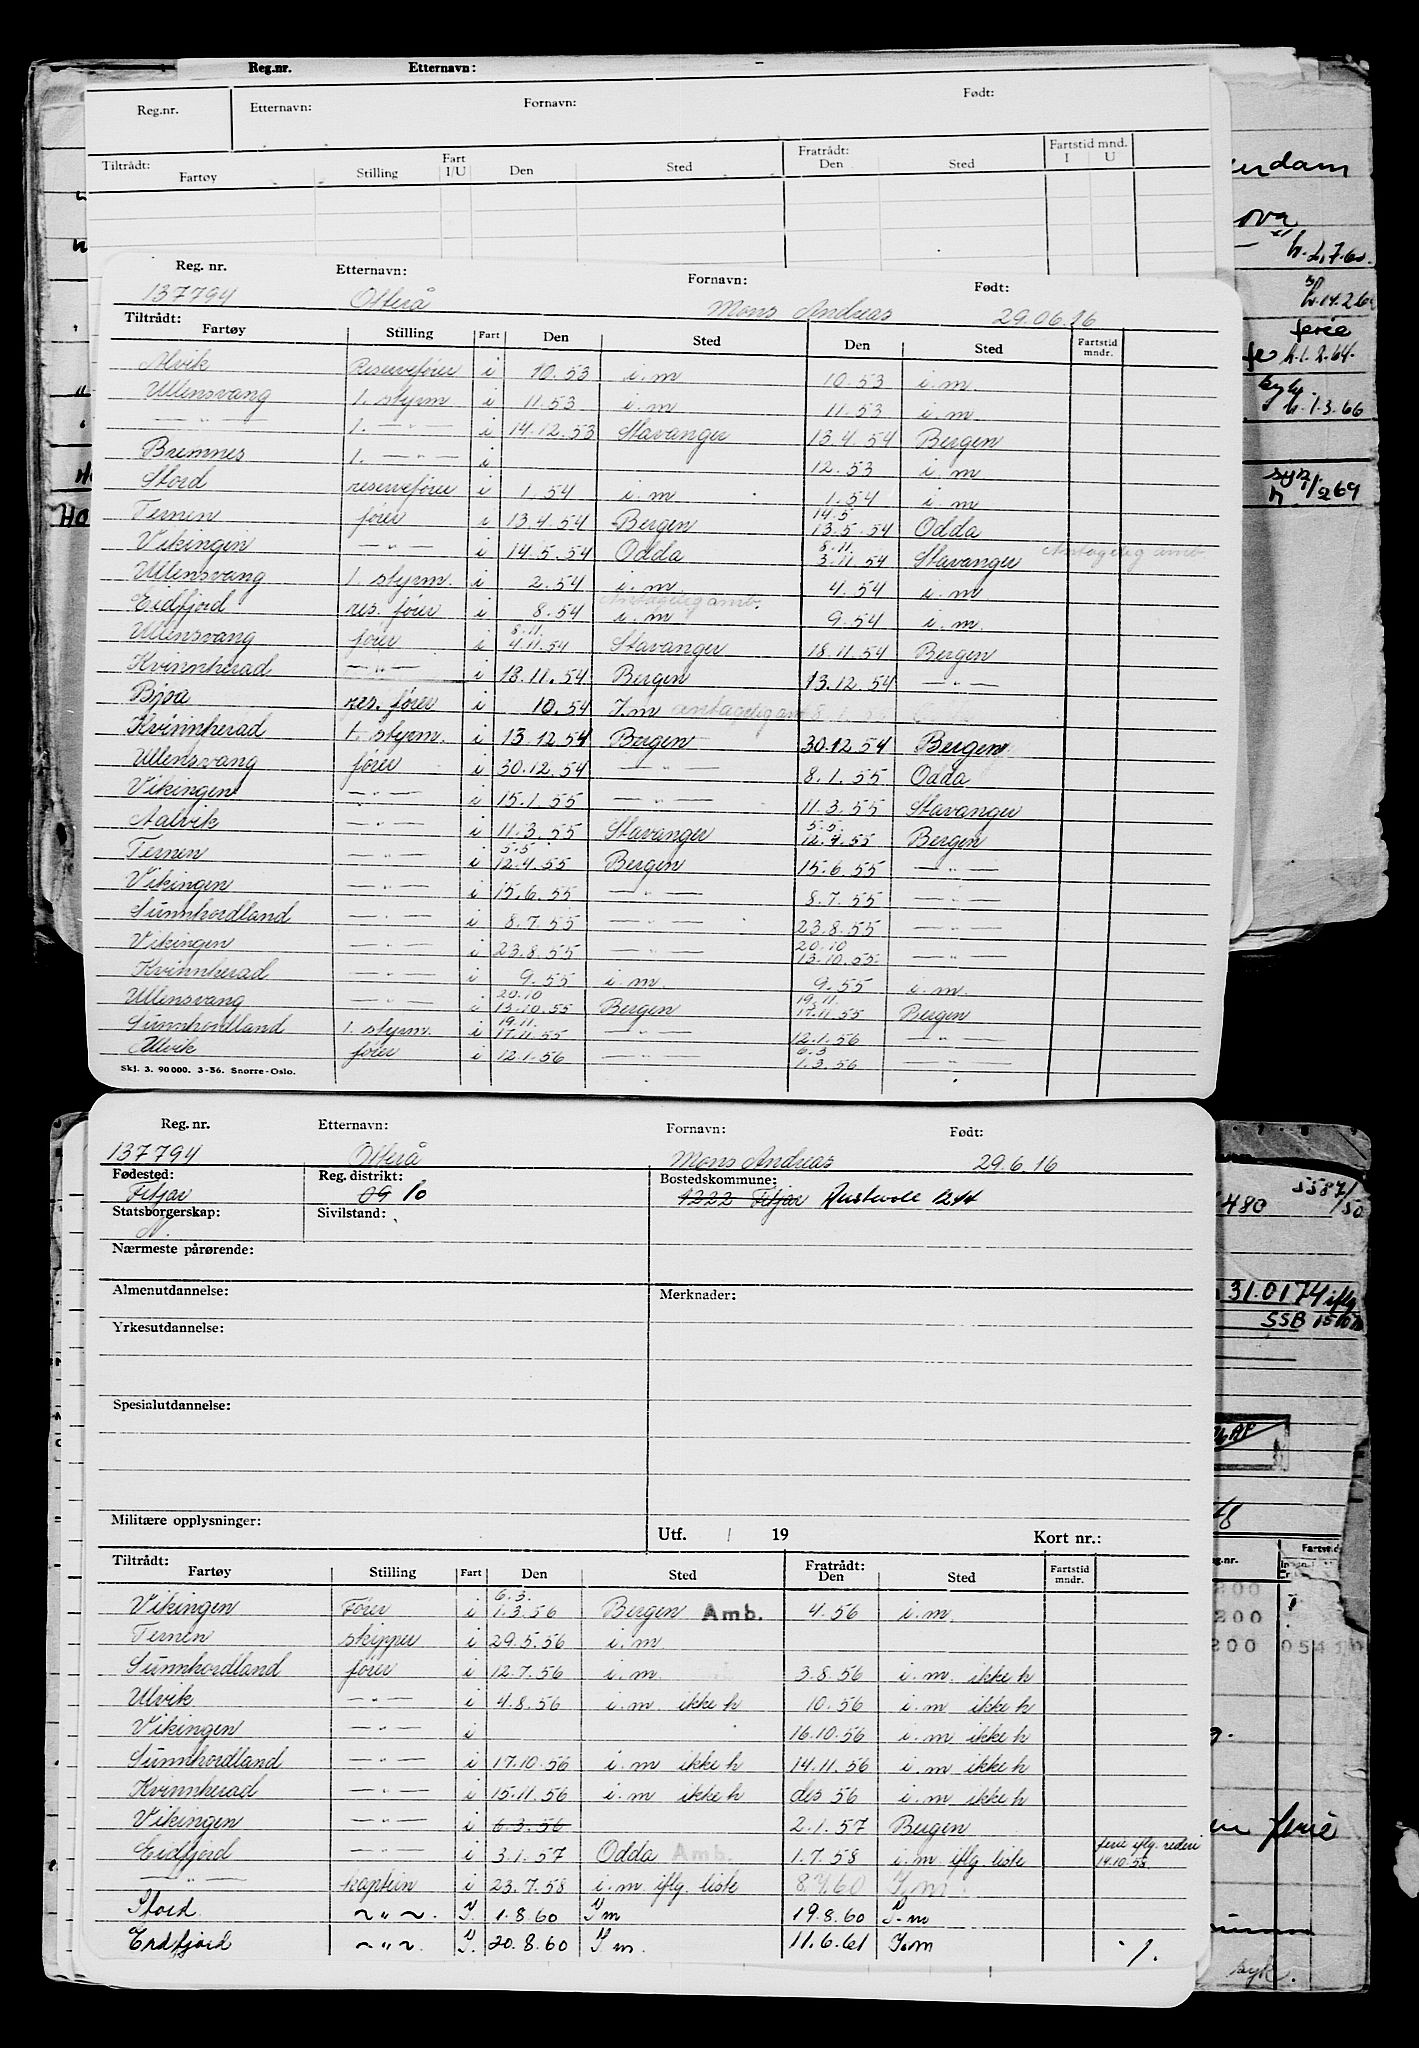 Reg.nr. Etternavn:
Reg.nr. Etternavn: Fornavn: Født:
Tiltrådt: Fartøy Stilling Fart I/U Den Sted Fratrådt: Den Sted Fartstid mnd. I U
Reg. nr. Etternavn: Fornavn: Født:
137794 Otterå Mons Andreas 29.06.16
Tiltrådt: Fartøy Stilling Fart Den Sted Den Sted Fartstid mndr.
Alvik Reservefører i 10.53 i.m 10.53 i.m
Ullensvang 1. styrm i 11.53 i.m 11.53 i.m
— " — 1. — " — i 14.12.53 Stavanger 13.4.54 Bergen
Bremnes 1. — " — i 12.53 i.m
Stord reservefører i 1.54 i.m 1.54 i.m
Ternen fører i 13.4.54 Bergen 14.5 13.5.54 Odda
Vikingen — " — i 14.5.54 Odda 8.11. 3.11.54 Stavanger Antagelig amb.
Ullensvang 1. styrm. i 2.54 i.m 4.54 i.m
Eidfjord res. fører i 8.54 Antagelig amb. i.m 9.54 i.m.
Ullensvang fører i 8.11. 4.11.54 Stavanger 18.11.54 Bergen
Kvinnherad — " — i 18.11.54 Bergen 13.12.54 — " —
Bjoa res. fører i 10.54 I.m antagelig amb
Kvinnherad 1. styrm. i 13.12.54 Bergen 30.12.54 Bergen
Ullensvang fører i 30.12.54 — " — 8.1.55 Odda
Vikingen — " — i 15.1.55 — " — 11.3.55 Stavanger
Aalvik — " — i 11.3.55 Stavanger 5.5. 12.4.55 Bergen
Ternen — " — i 5.5 12.4.55 Bergen 15.6.55 — " —
Vikingen — " — i 15.6.55 — " — 8.7.55 — " —
Sunnhordland — " — i 8.7.55 — " — 23.8.55 — " —
Vikingen — " — i 23.8.55 — " — 20.10 13.10.55 — " —
Kvinnherad — " — i 9.55 i.m. 9.55 i.m.
Ullensvang — " — i 20.10 13.10.55 Bergen 19.11. 17.11.55 Bergen
Sunnhordland 1. styrm. i 19.11. 17.11.55 — " — 12.1.56 — " —
Alvik fører i 12.1.56 — " — 6.3 1.3.56 — " —
Skj. 3. 90000. 3-56. Snorre-Oslo.
Reg. nr. Etternavn: Fornavn: Født:
137794 Otterå Mons Andreas 29.6.16
Fødested: Reg. distrikt: Bostedskommune:
Fitjar 09 10 1222 Fitjar Austevoll 1244
Statsborgerskap: Sivilstand:
N.
Nærmeste pårørende:
Almenutdannelse: Merknader:
Yrkesutdannelse:
Spesialutdannelse:
Militære opplysninger: Utf. / 19 Kort nr.:
Tiltrådt: Fartøy Stilling Fart Den Sted Fratrådt: Den Sted Fartstid mndr.
Vikingen Fører i 6.3. 1.3.56 Bergen Amb. 4.56 i.m.
Ternen skipper i 29.5.56 i.m
Sunnhordland fører i 12.7.56 i.m. 3.8.56 i.m. ikke h
Ulvik — " — i 4.8.56 i.m ikke h 10.56 i.m ikke h
Vikingen — " — i 16.10.56 i.m ikke h
Sunnhordland — " — i 17.10.56 i.m ikke h 14.11.56 i.m ikke h
Kvinnherad — " — i 15.11.56 i.m ikke h des 56 i.m ikke h
Vikingen — " — i 6.3.56 2.1.57 Bergen
Eidfjord — " — i 3.1.57 Odda Amb. 1.7.58 i.m. iflg. liste ferie iflg. rederi 14.10.58.
— " — kaptein i 23.7.58 i.m iflg. liste 8.7.60 I.m
Stord. ~ " ~ . I. 1.8.60 I m 19.8.60 I.m
Eidfjord ~ " ~ . I. 20.8.60 I m. 11.6.61 I.m ./.
ferie
h.1.2.64.
h.1.3.66
480 5587/50
31.0174 iflg
SSB
ferie